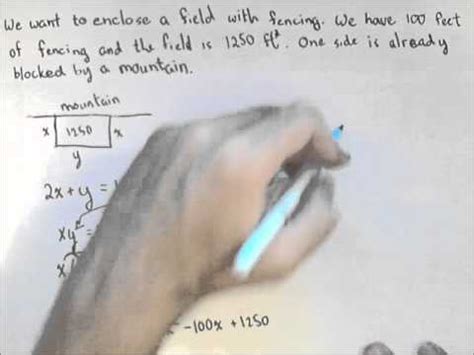 We want to enclose a field with fencing. We have 100 feet
of fencing and the field is 1250 ft². One side is already
blocked by a mountain.
mountain
x 1250 x
y
2x + y =
xy =
x
-100x + 1250